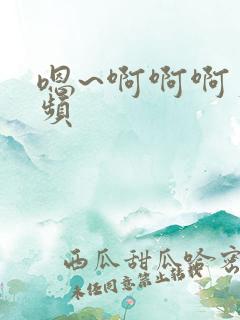 嗯~啊啊啊
頻
西瓜甜瓜哈密
未经同意禁止转载